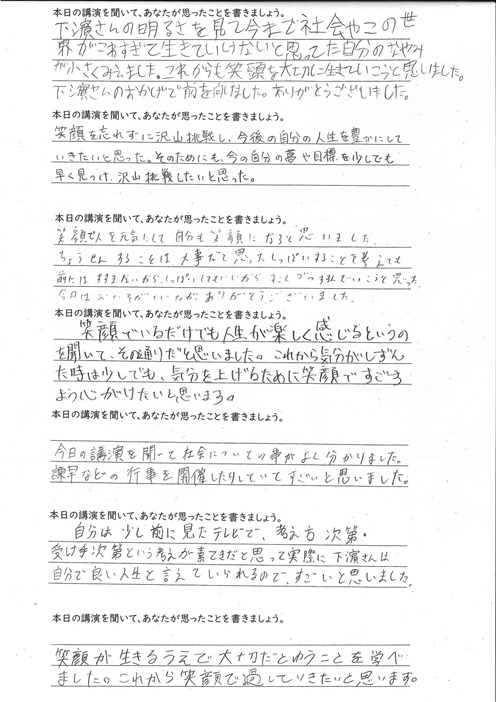 本日の講演を聞いて、あなたが思ったことを書きましょう。
下濵さんの明るさを見て今まで社会やこの世
界がこわすぎて生きていけないと思ってた自分のなやみ
が小さくみえました。これからも笑顔を大切に生きていこうと思いました。
下濵さんのおかげで前を向けました。ありがとうございました。
本日の講演を聞いて、あなたが思ったことを書きましょう。
笑顔を忘れずに沢山挑戦し、今後の自分の人生を豊かにして
いきたいと思った。そのためにも、今の自分の夢や目標を少しでも
早く見つけ、沢山挑戦したいと思った。
本日の講演を聞いて、あなたが思ったことを書きましょう。
笑顔は人を元気にして自分も笑顔になると思いました
ちょうせんすることは大事だと思った。しっぱいすることを考えても
前にはすすまないから、しっぱいしてもいいから すこしずつ進んでいこうと思った
今日は ありがとうございました。
本日の講演を聞いて、あなたが思ったことを書きましょう。
笑顔でいるだけでも人生が楽しく感じるというの
を聞いて、その通りだと思いました。これから気分がしずん
だ時は少しでも、気分を上げるために笑顔ですごす
よう心がけたいと思います。
本日の講演を聞いて、あなたが思ったことを書きましょう。
今日の講演を聞いて社会についての事がよく分かりました。
諫早などの行事を開催したりしていてすごいと思いました。
本日の講演を聞いて、あなたが思ったことを書きましょう。
自分は少し前に見たテレビで、考え方次第・
受け手次第という考えが素てきだと思って実際に下濵さんは
自分で良い人生と言えていられるので、すごいと思いました。
本日の講演を聞いて、あなたが思ったことを書きましょう。
笑顔が生きるうえで大切だとゆうことを学べ
ました。これから笑顔で過していきたいと思います。